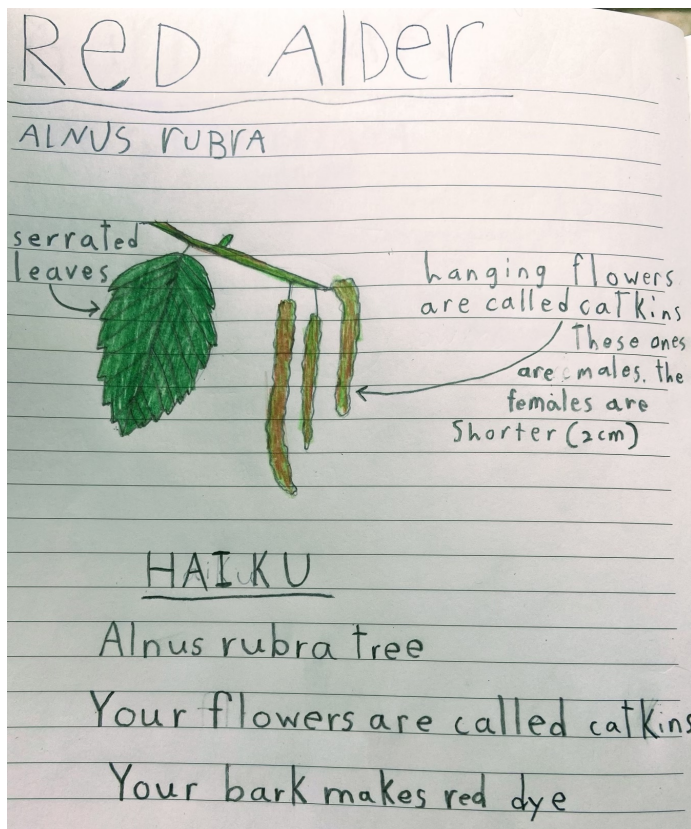 RED AlDer
ALNUS rUBrA
serrated
leaves
hanging flowers
are called catkins
These ones
are males. the
females are
Shorter (2cm)
HAIKU
Alnus rubra tree
Your flowers are called catkins
Your bark makes red dye